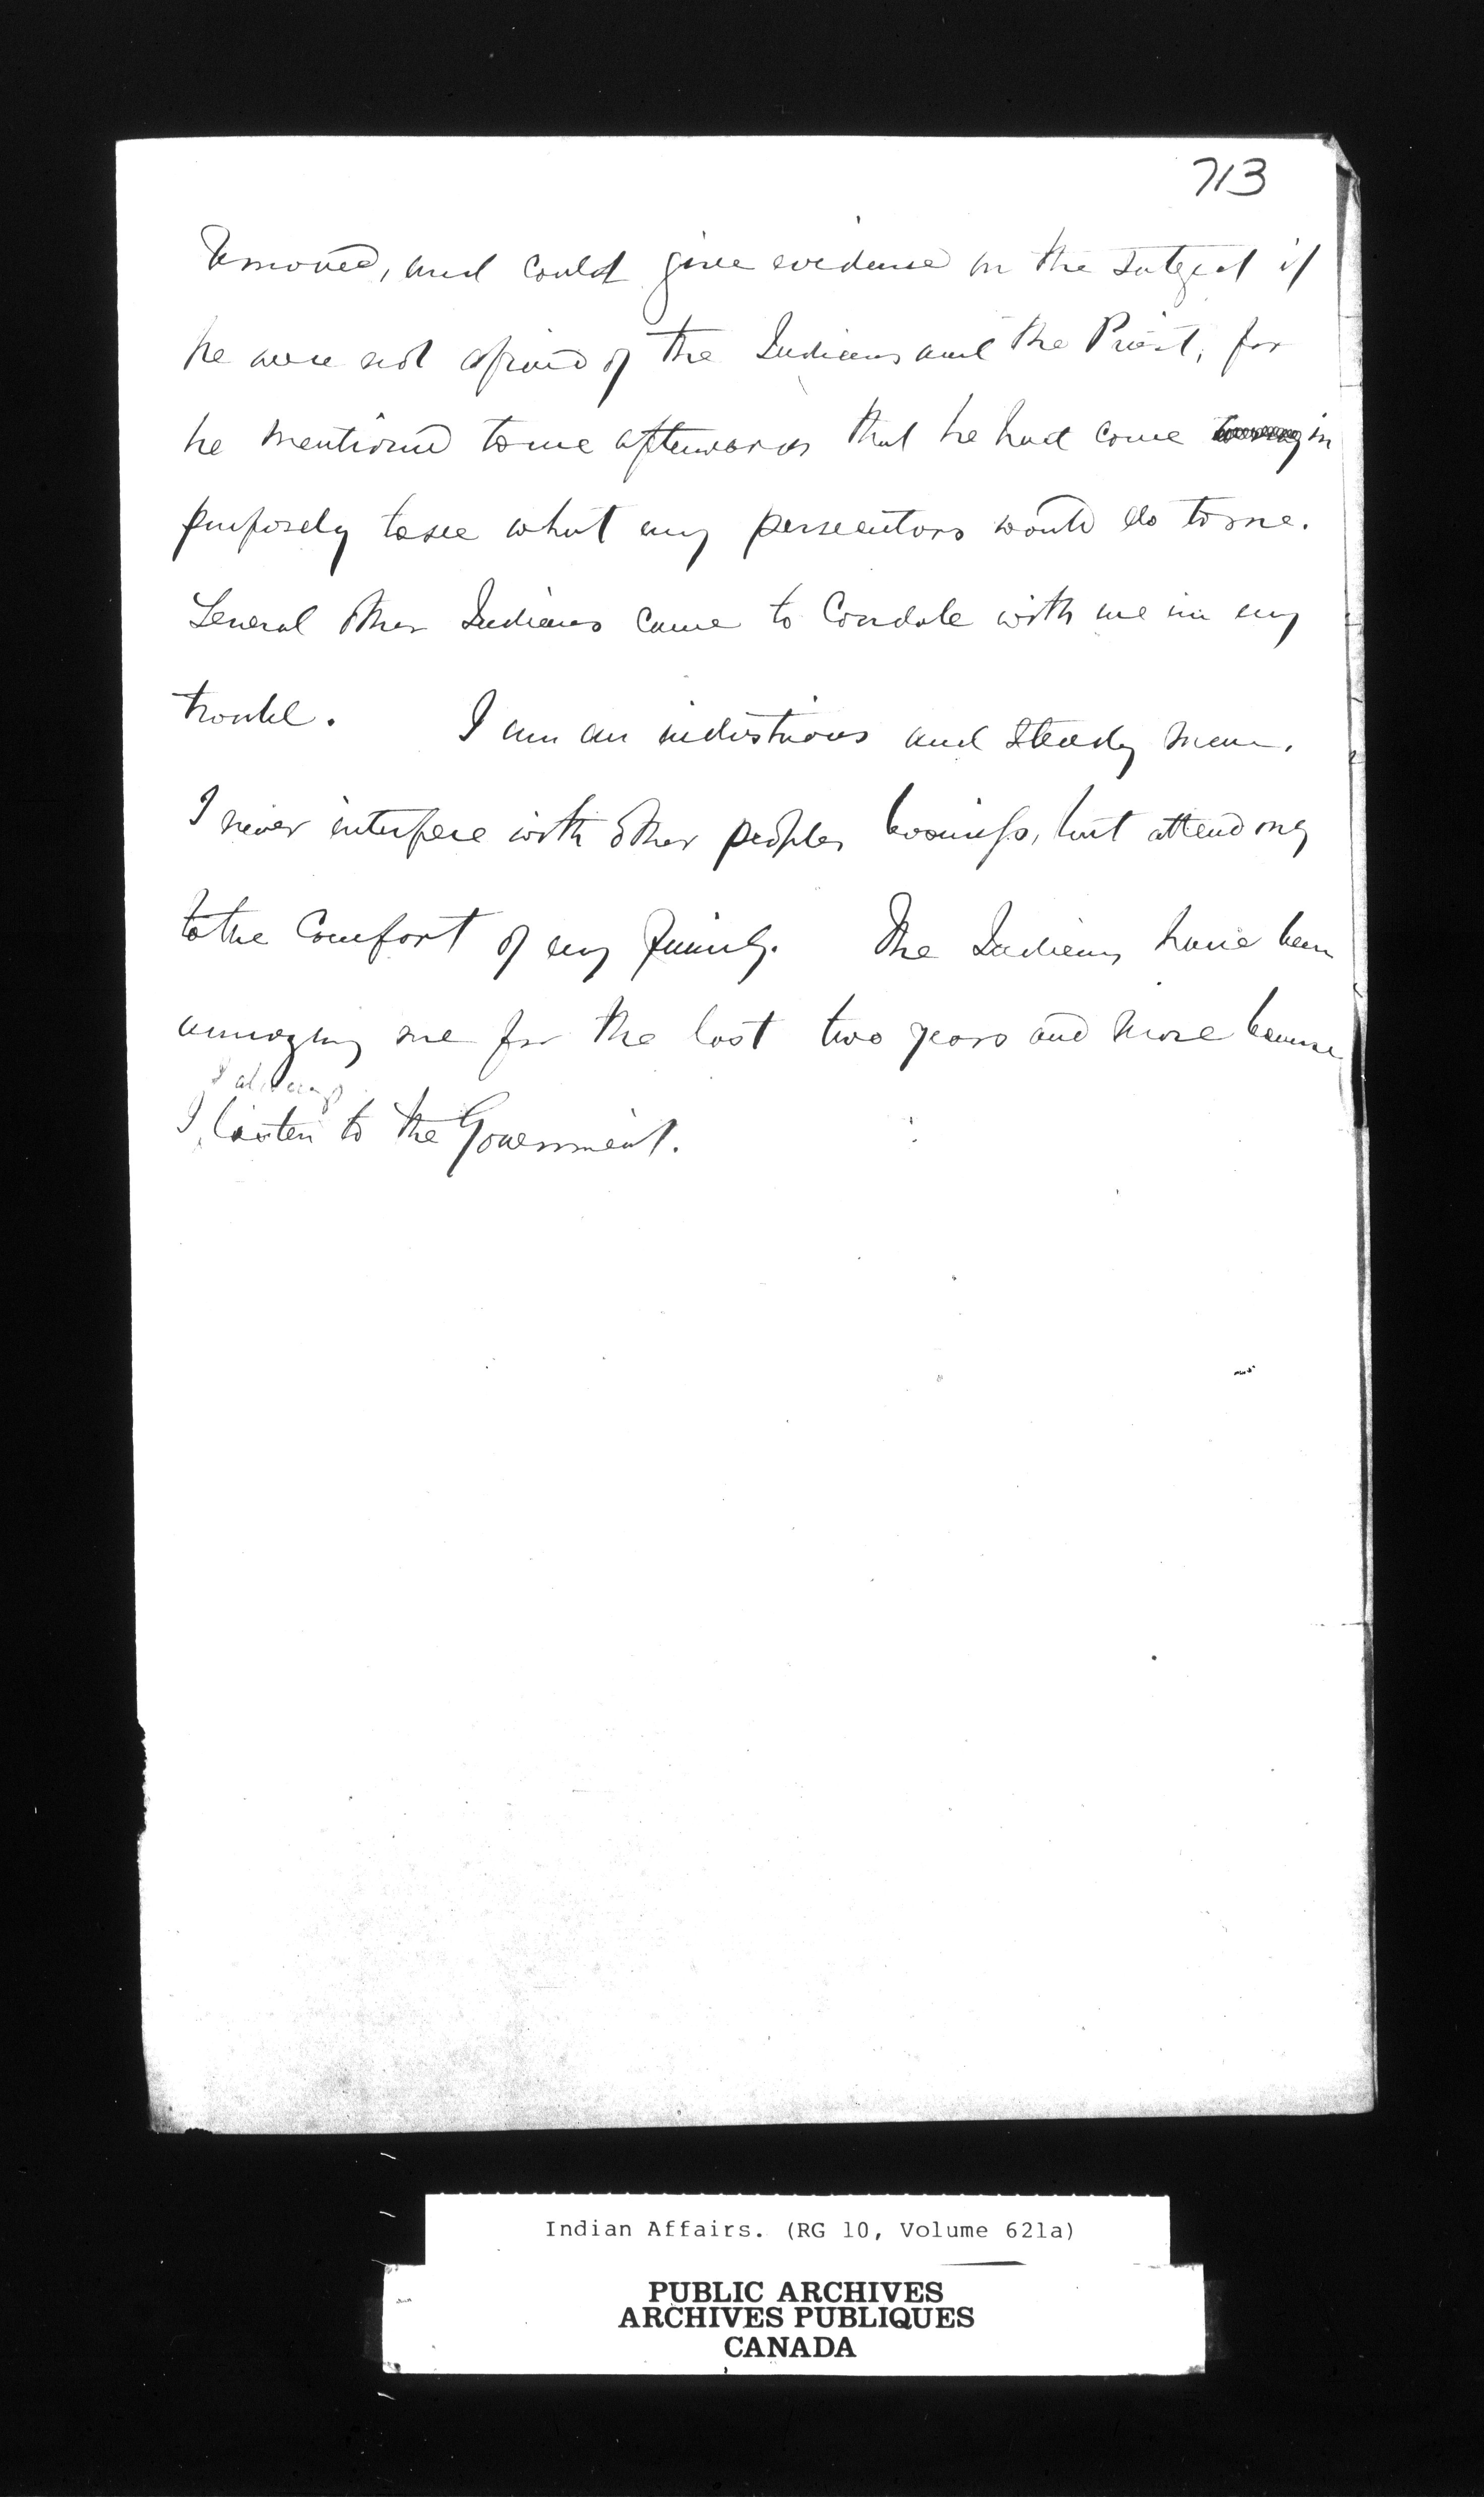 713
removed, and could give evidence on the subject if
he were not afraid of the Indians and the Priest, for
he mentioned to me afterwards that he had come in
purposely to see what my persecutors would do to me.
Several other Indians came to Condole with me in my
trouble. I am an industrious and steady man.
I never interfere with other peoples business, but attend only
to the Comfort of my family. The Indians have been
annoying me for the last two years and more because
I always
I listen to the Government.
Indian Affairs. (RG 10, Volume 621a)
PUBLIC ARCHIVES
ARCHIVES PUBLIQUES
CANADA